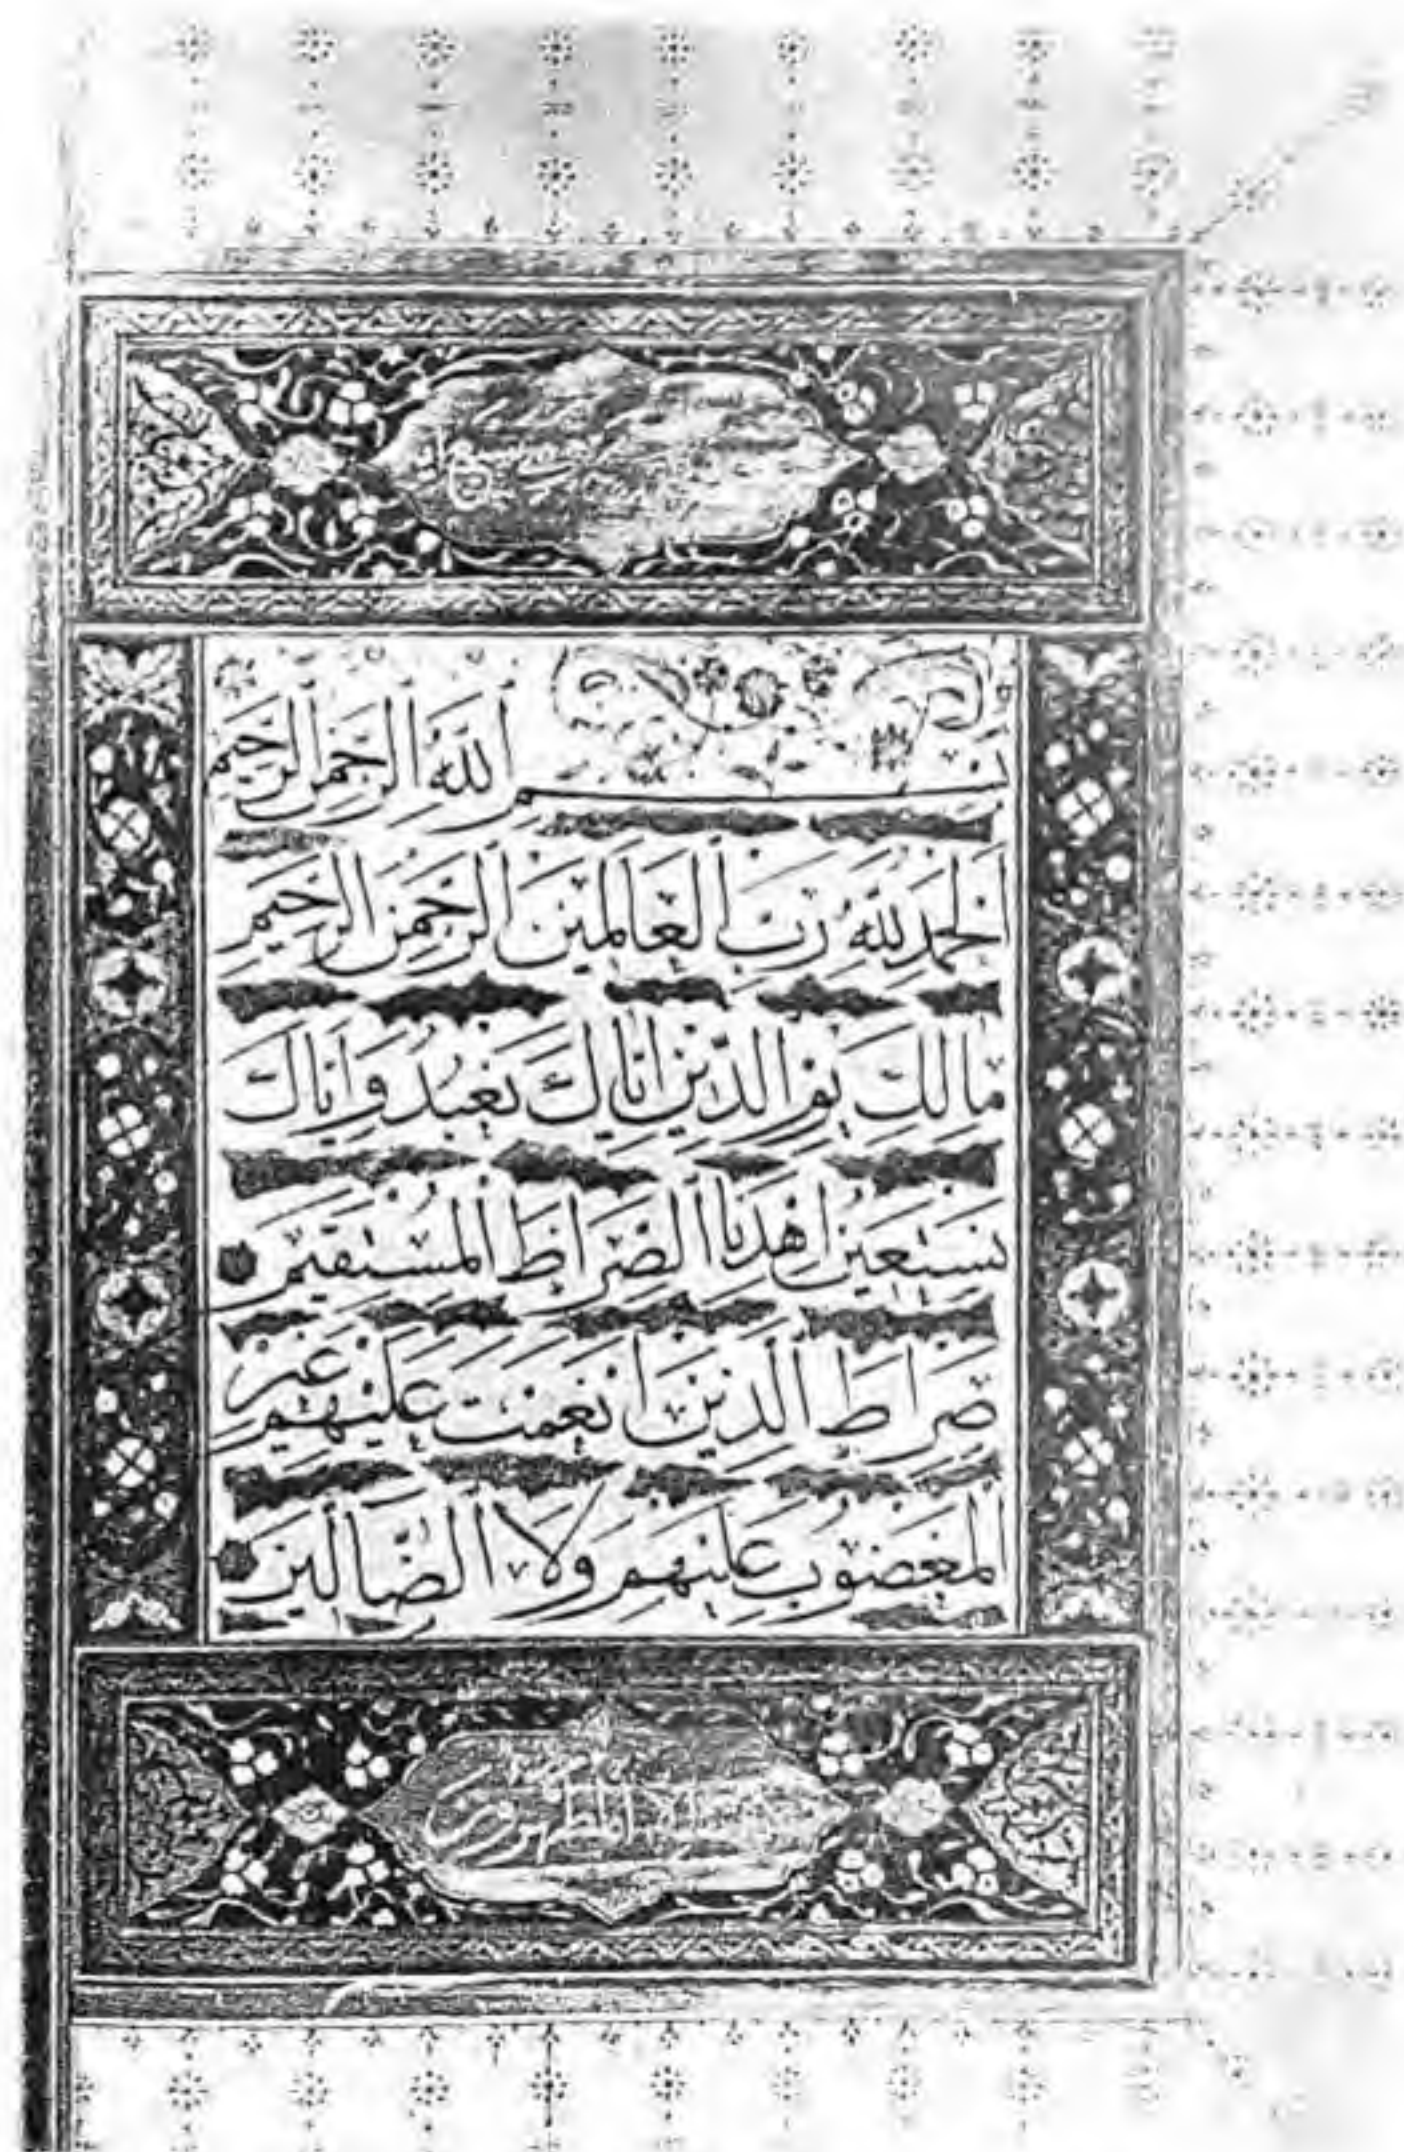 بِسْمِ اللَّهِ الرَّحْمَنِ الرَّحِيمِ
الْحَمْدُ لِلَّهِ رَبِّ الْعَالَمِينَ الرَّحْمَنِ الرَّحِيمِ
مَالِكِ يَوْمِ الدِّينِ إِيَّاكَ نَعْبُدُ وَإِيَّاكَ
نَسْتَعِينُ اهْدِنَا الصِّرَاطَ الْمُسْتَقِيمَ
صِرَاطَ الَّذِينَ أَنْعَمْتَ عَلَيْهِمْ غَيْرِ
الْمَغْضُوبِ عَلَيْهِمْ وَلَا الضَّالِّينَ
إلا المطهرون